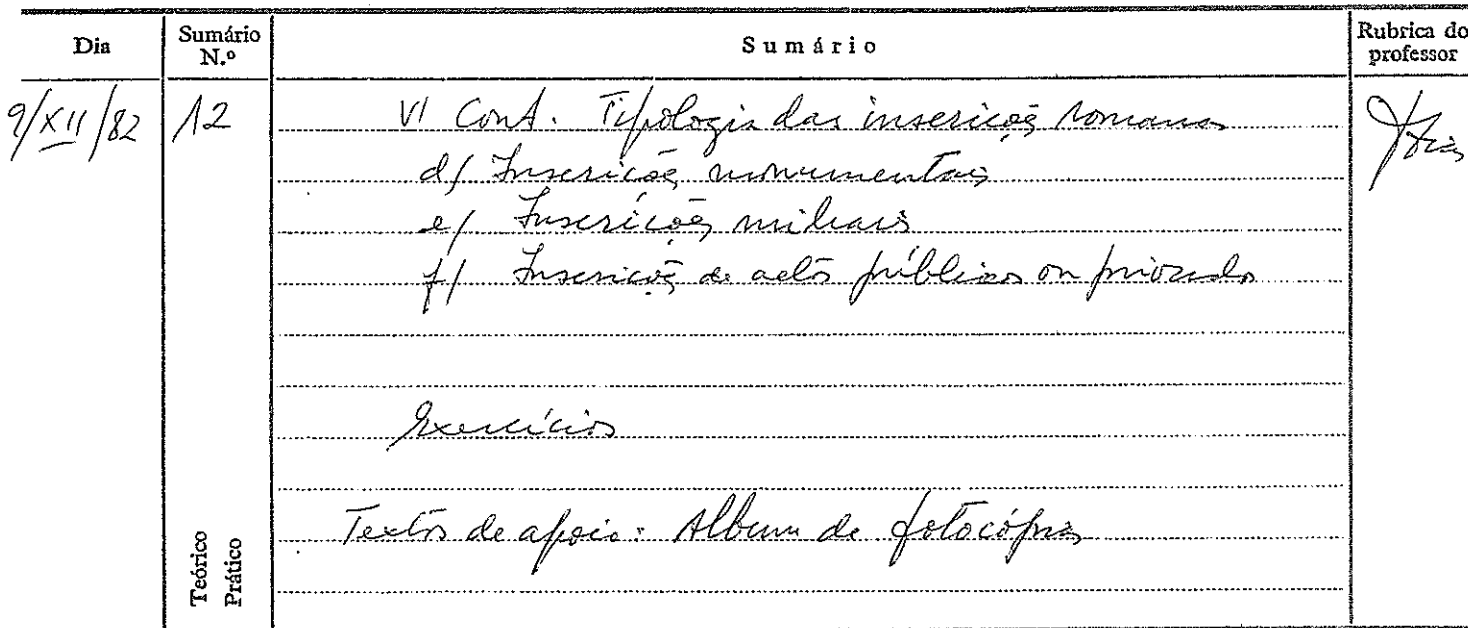 Dia
Sumário N.º
Sumário
Rubrica do professor
9/XII/82
12
VI Cont. Tipologia das inscrições romanas
d/ Inscrições monumentais
e/ Inscrições miliares
f/ Inscrições de actos públicos ou privados
Exercícios
Textos de apoio: Album de fotocópias
Teórico
Prático